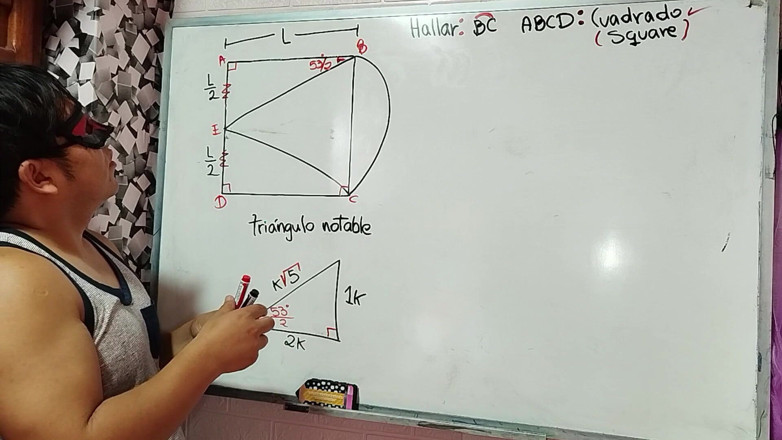 Hallar: BC ABCD: Cuadrado
(Square)
L
A
B
53°/2
L/2
E
L/2
D
C
triángulo notable
K√5
1K
53°/2
2K